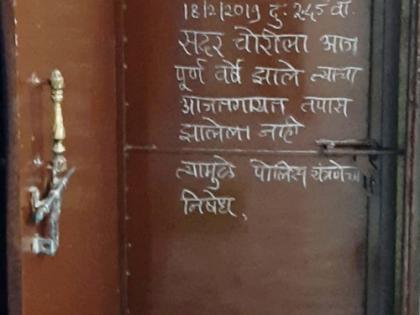 18/2/2019 दु. २४५ वा.
सदर चोरीला आज
पूर्ण वर्ष झाले त्याचा
आजतगायत तपास
झालेला नाही
त्यामुळे पोलिस यंत्रणेचा
निषेध,